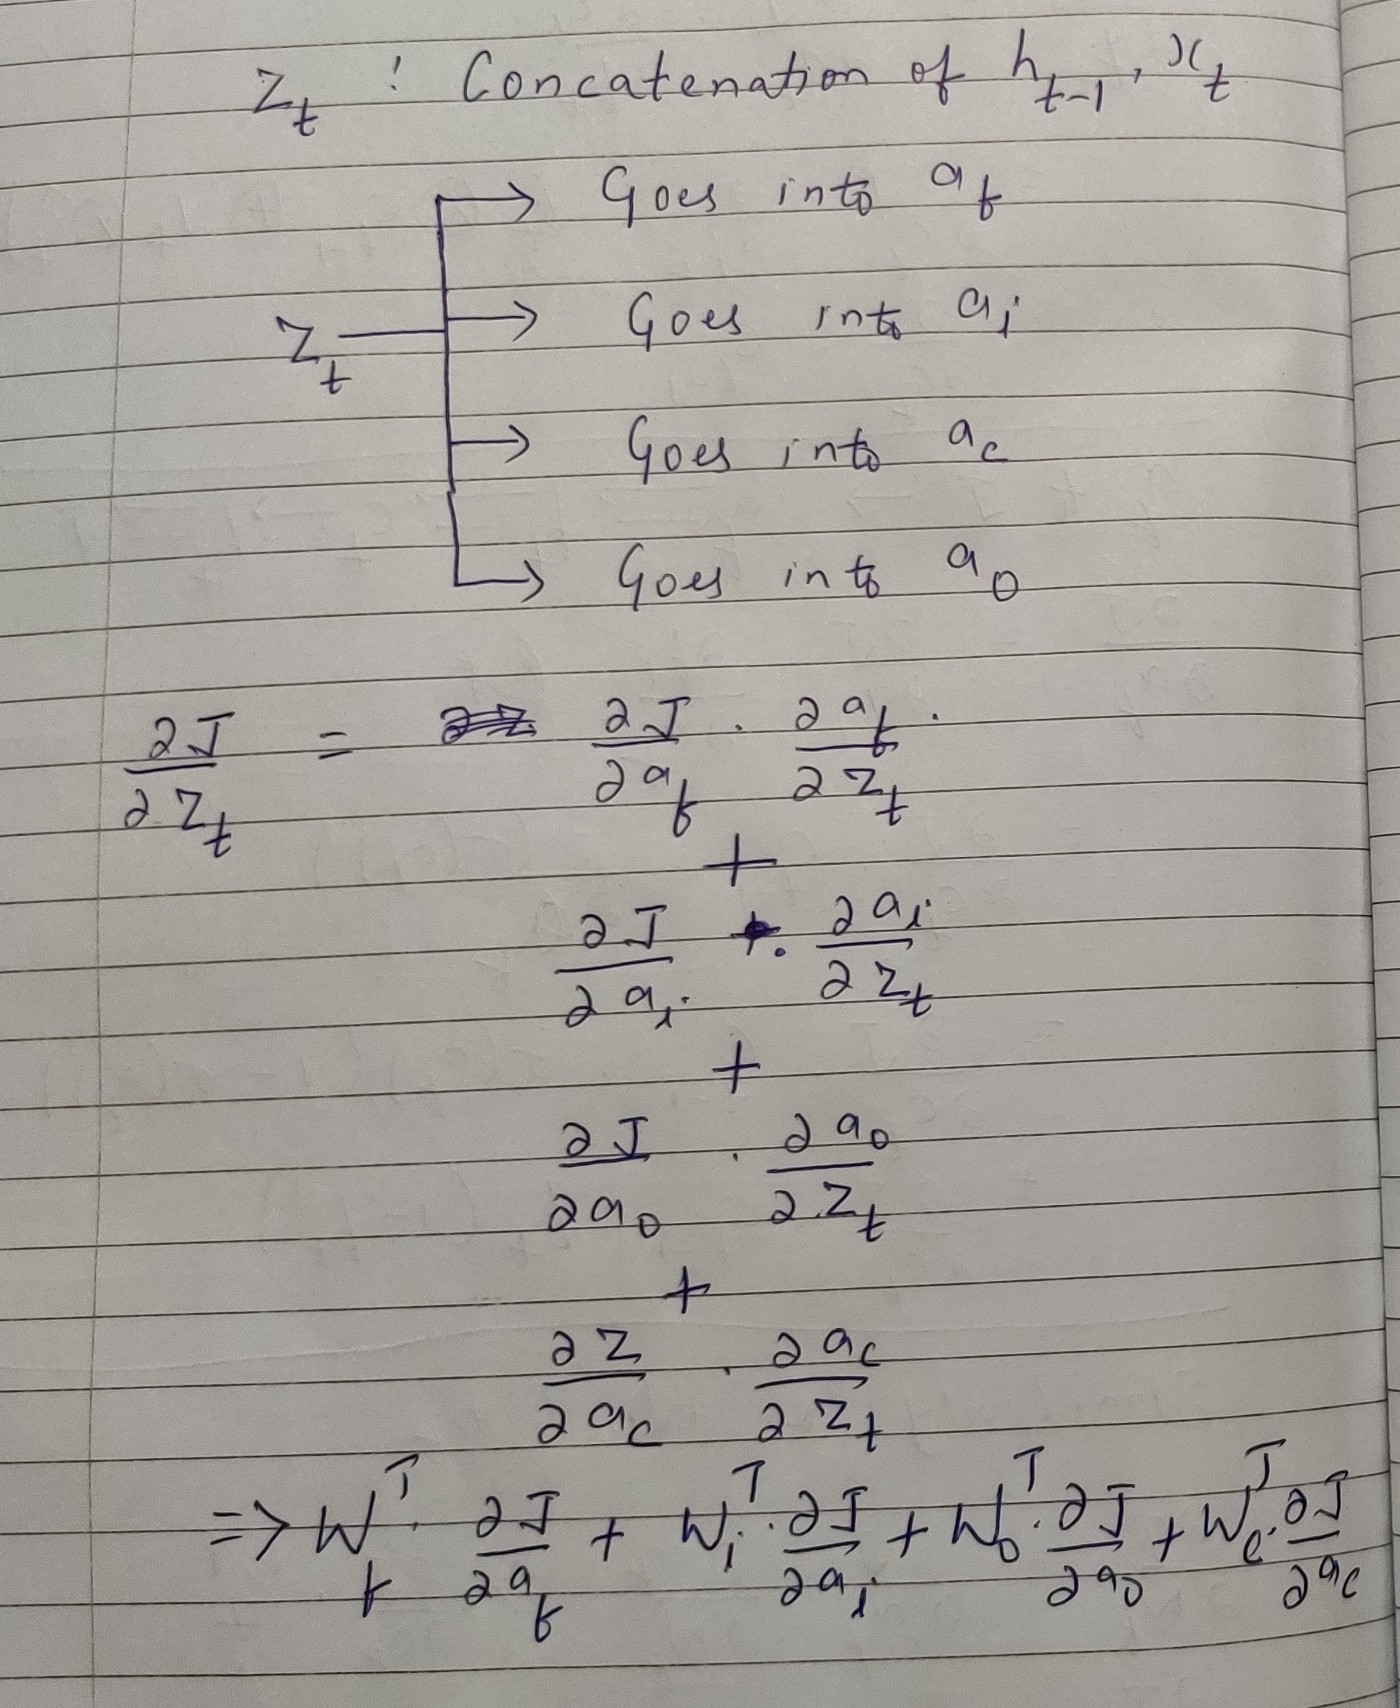 Z_t : Concatenation of h_{t-1}, x_t
→ Goes into a_f
→ Goes into a_i
Z_t
→ Goes into a_c
→ Goes into a_o
∂J/∂Z_t = ∂J/∂a_f . ∂a_f/∂Z_t .
+
∂J/∂a_i . ∂a_i/∂Z_t
+
∂J/∂a_o . ∂a_o/∂Z_t
+
∂Z/∂a_c . ∂a_c/∂Z_t
=> W_f^T . ∂J/∂a_f + W_i^T . ∂J/∂a_i + W_o^T . ∂J/∂a_o + W_c^T . ∂J/∂a_c